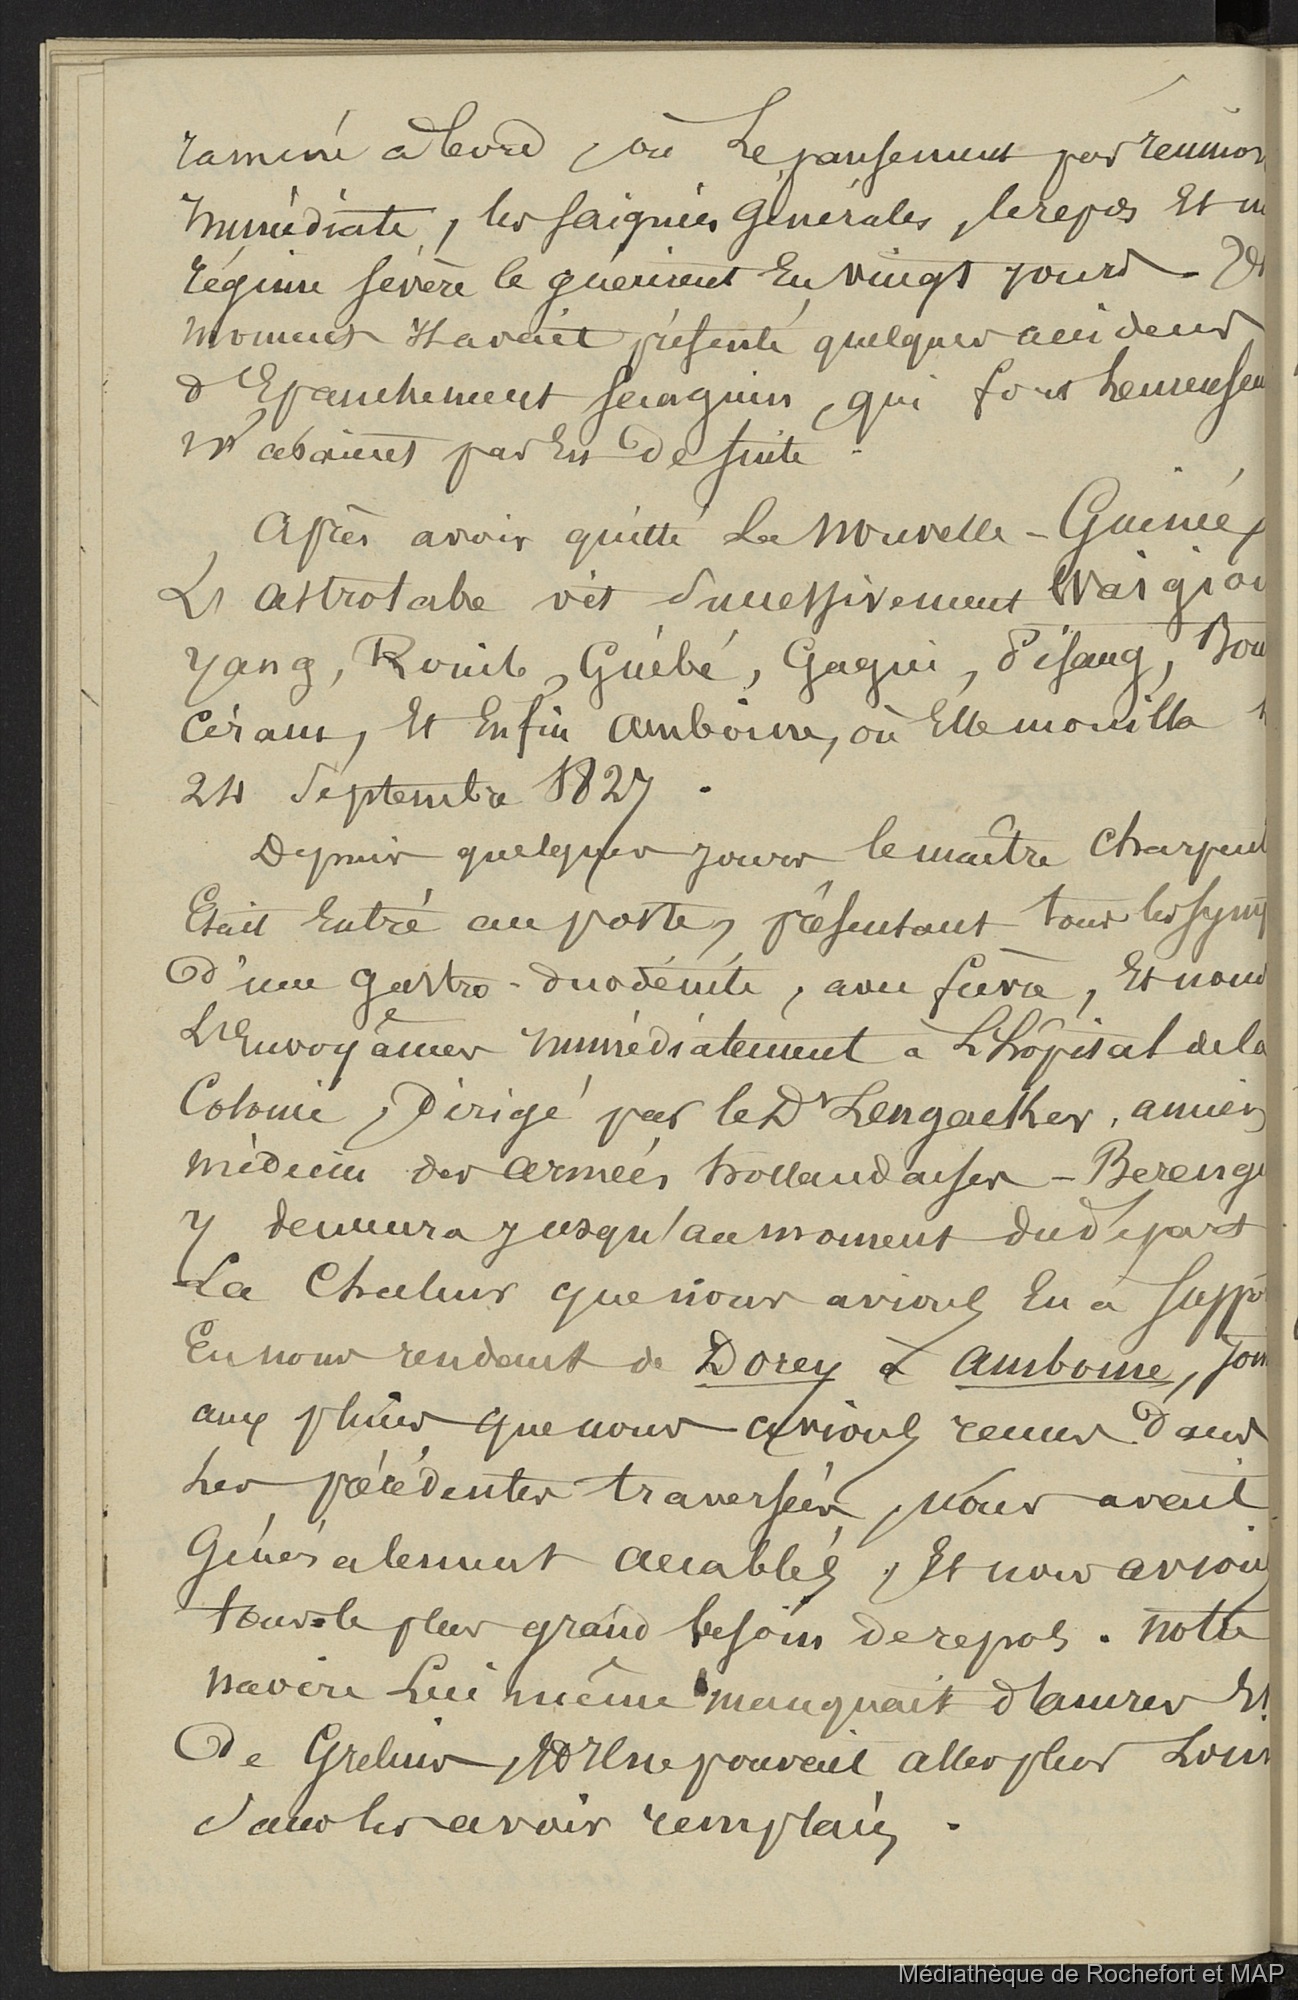 ramené à bord, où le pansement par réunion
immédiate, les saignées générales, le repos et u
régime sévère le guérirent en vingt jours - Des
momens il avait présenté quelques accidens
d'Epanchement sanguin, qui fort heureusem
n'eûrent pas en de suite.
Après avoir quitté la Nouvelle-Guinée,
L'astrolabe vit successivement Waigiou
yang, Rouib, Guébé, Gagui, Pisang, Bou
Céram, et enfin amboine, où elle mouilla l
24 Septembre 1827.
Depuis quelques jours le maître charpent
Etait entré au poste, présentant tous les symp
d'une gastro-duodénite, avec fièvre, et nous
L'Envoyâmes immédiatement à l'hôpital de la
Colonie, dirigé par le Dr Lengacker, ancien
médecin des armées hollandaises - Bereng
y demeura jusqu'au moment du départ
La Chaleur que nous avions eu à suppo
En nous rendant de Dorey à Amboine, join
aux pluies que nous avions reçues dans
les précédentes traversées, nous avait
Généralement accablés, et nous avions
tous le plus grand besoin de repos. notre
navire lui même manquait d'ancres et
de Grelins, et il ne pouvait aller plus loin
sans les avoir remplacés.
Médiathèque de Rochefort et MAP